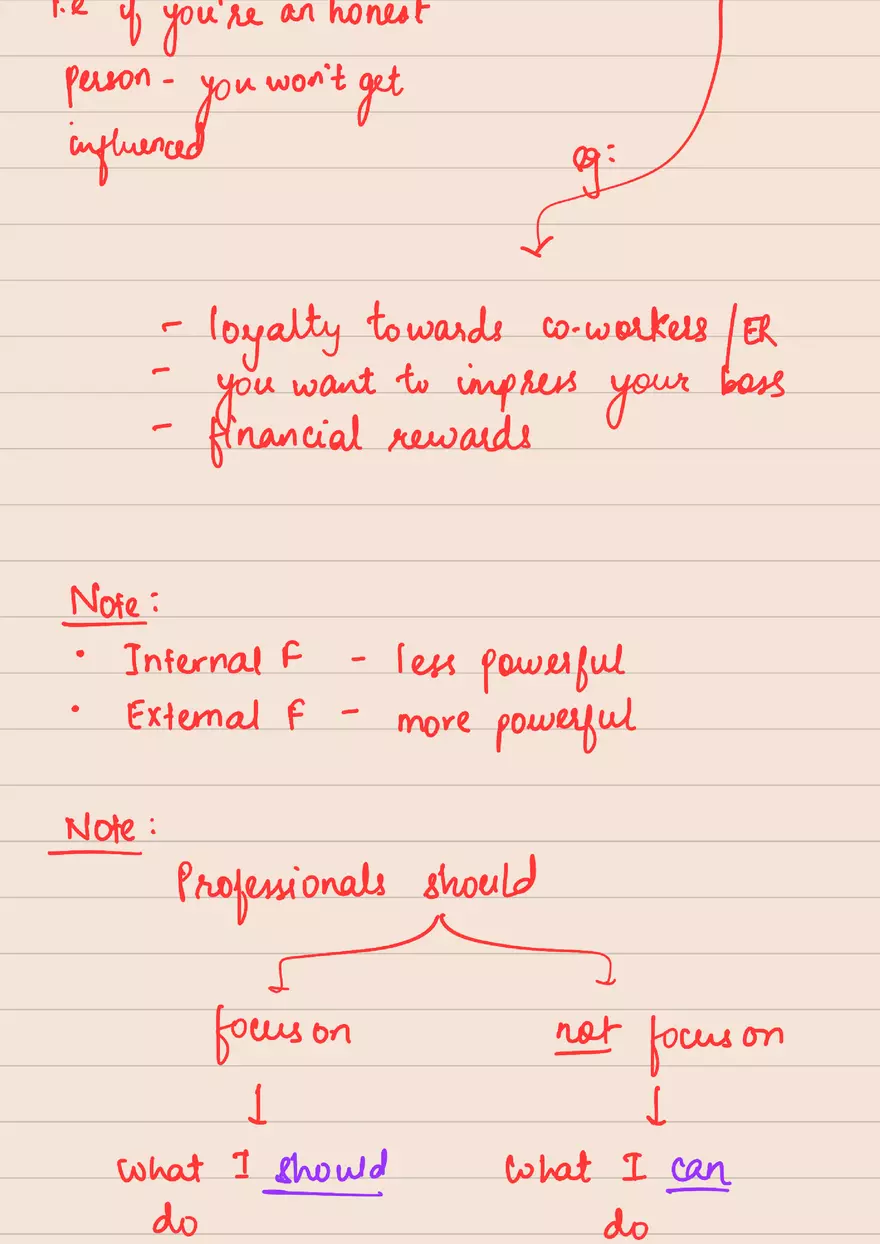 i.e if you're an honest
person - you won't get
influenced
eg:
- loyalty towards co-workers / ER
- you want to impress your boss
- financial rewards
Note:
• Internal F - less powerful
• External F - more powerful
Note:
Professionals should
focus on not focus on
what I should what I can
do do